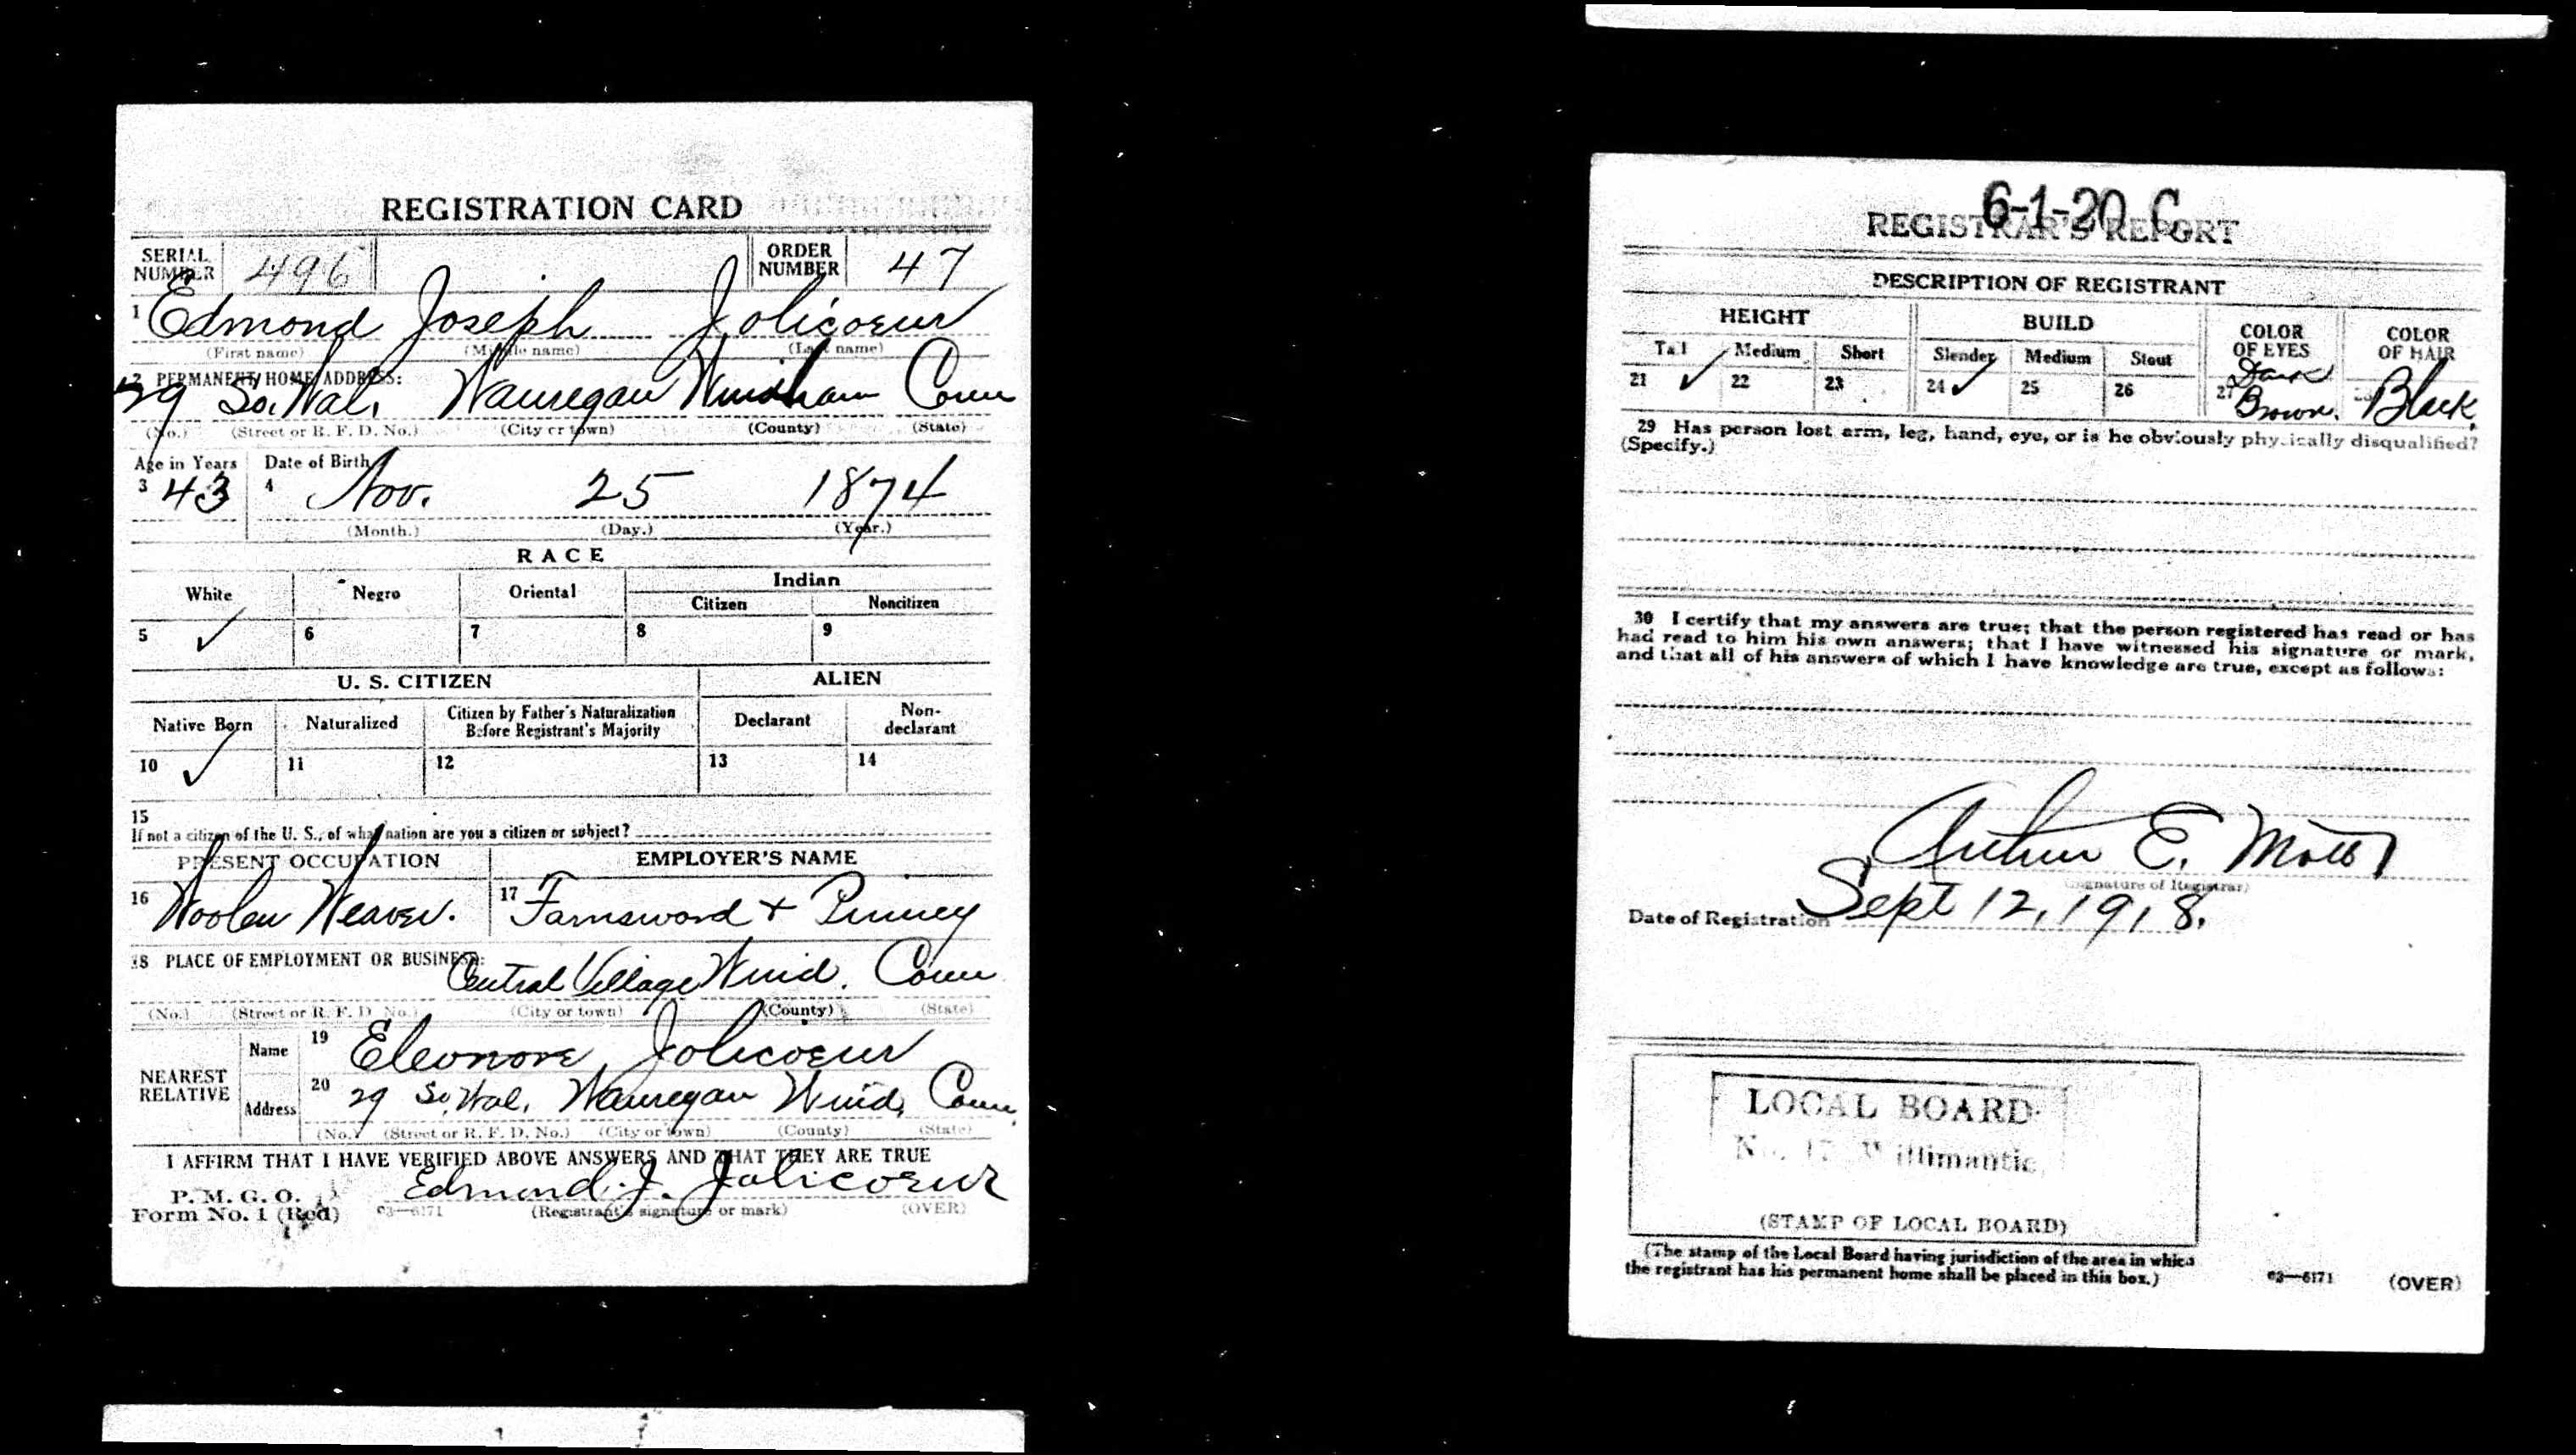 REGISTRATION CARD
SERIAL NUMBER 496 ORDER NUMBER 47
1 Edmond Joseph Jolicoeur
(First name) (Middle name) (Last name)
2 PERMANENT HOME ADDRESS:
29 So. Wal. Wauregan Windham Conn
(No.) (Street or R. F. D. No.) (City or town) (County) (State)
Age in Years Date of Birth
3 43 4 Nov. 25 1874
(Month.) (Day.) (Year.)
RACE
White Negro Oriental Indian
Citizen Noncitizen
5 ✓ 6 7 8 9
U. S. CITIZEN ALIEN
Native Born Naturalized Citizen by Father's Naturalization Before Registrant's Majority Declarant Non-declarant
10 ✓ 11 12 13 14
15
If not a citizen of the U. S., of what nation are you a citizen or subject?
PRESENT OCCUPATION EMPLOYER'S NAME
16 Woolen Weaver. 17 Farnsword + Pinney
18 PLACE OF EMPLOYMENT OR BUSINESS:
Central Village Wind. Conn
(No.) (Street or R. F. D. No.) (City or town) (County) (State)
NEAREST RELATIVE
Name 19 Eleonore Jolicoeur
Address 20 29 So. Wal. Wauregan Wind. Conn.
(No.) (Street or R. F. D. No.) (City or town) (County) (State)
I AFFIRM THAT I HAVE VERIFIED ABOVE ANSWERS AND THAT THEY ARE TRUE
P. M. G. O.
Form No. 1 (Red) 03—6171 Edmond. J. Jolicoeur
(Registrant's signature or mark) (OVER)
6-1-20 C
REGISTRAR'S REPORT
DESCRIPTION OF REGISTRANT
HEIGHT BUILD COLOR OF EYES COLOR OF HAIR
Tall Medium Short Slender Medium Stout
21 ✓ 22 23 24 ✓ 25 26 27 Dark Brown. 28 Black.
29 Has person lost arm, leg, hand, eye, or is he obviously physically disqualified?
(Specify.)
30 I certify that my answers are true; that the person registered has read or has
had read to him his own answers; that I have witnessed his signature or mark,
and that all of his answers of which I have knowledge are true, except as follows:
Arthur E.
(Signature of Registrar)
Date of Registration Sept 12, 1918.
LOCAL BOARD
Willimantic,
(STAMP OF LOCAL BOARD)
(The stamp of the Local Board having jurisdiction of the area in which
the registrant has his permanent home shall be placed in this box.)
03—6171 (OVER)